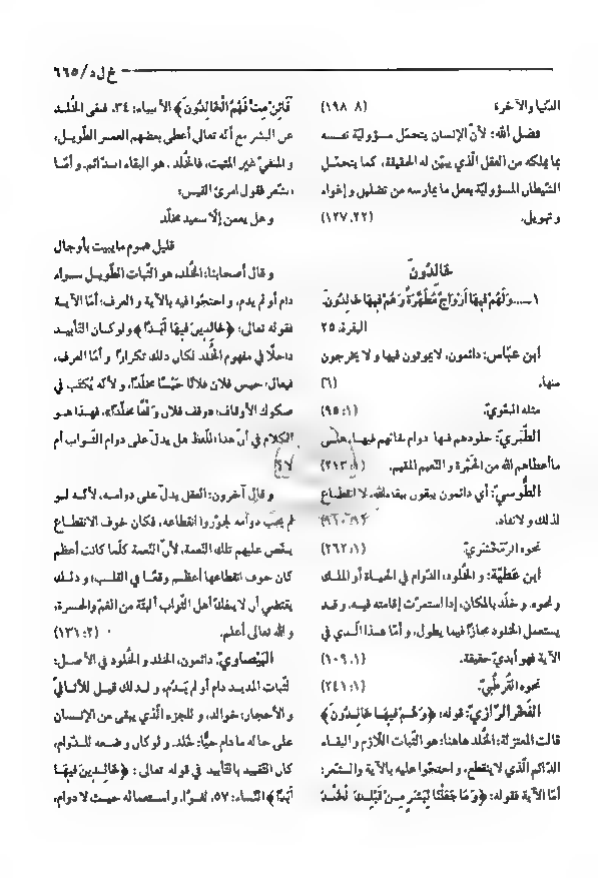 خ ل د / ٦٦٥
الدّنيا والآخرة. (٨: ١٩٨)
فضل الله: لأنّ الإنسان يتحمّل مسؤوليّة نفسه
بما يملكه من العقل الّذي يبيّن له الحقيقة، كما يتحمّل
الشّيطان المسؤوليّة بفعل ما يمارسه من تضليل وإغواء
وتهويل. (٢٢: ١٢٧)
خَالِدُونَ
١ـ ...وَلَهُمْ فِيهَا أَزْوَاجٌ مُطَهَّرَةٌ وَهُمْ فِيهَا خَالِدُونَ.
البقرة: ٢٥
ابن عبّاس: دائمون، لا يموتون فيها ولا يخرجون
منها. (٦)
مثله البغَويّ. (١: ٩٥)
الطّبَريّ: خلودهم فيها دوام بقائهم فيها، على
ما أعطاهم الله من الحَبْرة والنّعيم المقيم. (١: ٢١٣)
الطُّوسيّ: أي دائمون يبقون ببقاء الله، لا انقطاع
لذلك ولا نفاد.
نحوه الزّمَخْشَريّ. (١: ٢٦٢)
ابن عَطيّة: والخلود: الدّوام في الحياة أو الملك
ونحوه. وخلّد بالمكان، إذا استمرّت إقامته فيه. وقد
يستعمل الخلود مجازًا فيما يطول، وأمّا هذا الّذي في
الآية فهو أبديّ حقيقة. (١: ١٠٩)
نحوه القُرطُبيّ. (١: ٢٤١)
الفَخْر الرّازيّ: قوله: ﴿وَهُمْ فِيهَا خَالِدُونَ﴾
قالت المعتزلة: الخُلد هاهنا: هو الثّبات اللّازم والبقاء
الدّائم الّذي لا ينقطع، واحتجّوا عليه بالآية والشّعر:
أمّا الآية فقوله: ﴿وَمَا جَعَلْنَا لِبَشَرٍ مِنْ قَبْلِكَ الْخُلْدَ
أَفَائِنْ مِتَّ فَهُمُ الْخَالِدُونَ﴾ الأنبياء: ٣٤، فنفى الخُلد
عن البشر مع أنّه تعالى أعطى بعضهم العمر الطّويل،
والمنفيّ غير المثبت، فالخُلد. هو البقاء الدّائم. وأمّا
الشّعر فقول امرئ القيس:
وهل يعمن إلّا سعيد مخلّد
قليل هموم ما يبيت بأوجال
وقال أصحابنا: الخُلد، هو الثّبات الطّويل سواء
دام أو لم يدم، واحتجّوا فيه بالآية والعرف: أمّا الآية
فقوله تعالى: ﴿خَالِدِينَ فِيهَا أَبَدًا﴾ ولو كان التّأبيد
داخلًا في مفهوم الخُلد لكان ذلك تكرارًا. وأمّا العرف،
فيقال: حبس فلان فلانًا حَبْسًا مخلّدًا، ولأنّه يُكتب في
صكوك الأوقاف: «وقف فلان وَقْفًا مخلّدًا»، فهذا هو
الكلام في أنّ هذا اللّفظ هل يدلّ على دوام الثّواب أم
لا؟
وقال آخرون: العقل يدلّ على دوامه، لأنّه لو
لم يجب دوامه لجوّزوا انقطاعه، فكان خوف الانقطاع
ينغّص عليهم تلك النّعمة، لأنّ النّعمة كلّما كانت أعظم
كان خوف انقطاعها أعظم وقعًا في القلب؛ وذلك
يقتضي أن لا ينفكّ أهل الثّواب ألبتّة من الغمّ والحسرة،
والله تعالى أعلم. (٢: ١٣١)
البَيْضاويّ: دائمون، الخلد والخُلود في الأصل:
الثّبات المديد دام أو لم يَدُم، ولذلك قيل للأثافيّ
والأحجار: خوالد، وللجزء الّذي يبقى من الإنسان
على حاله ما دام حيًّا: خَلَد. ولو كان وضعه للدّوام،
كان التّقييد بالتّأبيد في قوله تعالى: ﴿خَالِدِينَ فِيهَا
أَبَدًا﴾ النّساء: ٥٧، لغوًا. واستعماله حيث لا دوام،